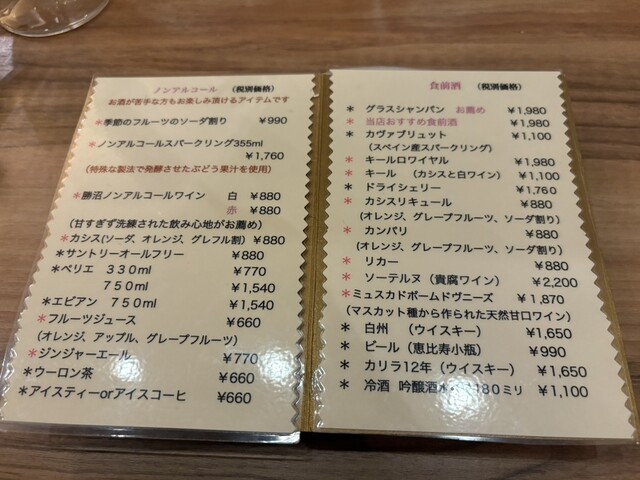 ノンアルコール （税別価格）
お酒が苦手な方もお楽しみ頂けるアイテムです
*季節のフルーツのソーダ割り ¥990
*ノンアルコールスパークリング355ml
¥1,760
（特殊な製法で発酵させたぶどう果汁を使用）
*勝沼ノンアルコールワイン 白 ¥880
赤 ¥880
（甘すぎず洗練された飲み心地がお薦め）
*カシス(ソーダ、オレンジ、グレフル割） ¥880
*サントリーオールフリー ¥880
*ペリエ ３３０ml ¥770
７５０ml ¥1,540
*エビアン ７５０ml ¥1,540
*フルーツジュース ¥660
（オレンジ、アップル、グレープフルーツ）
*ジンジャーエール ¥770
*ウーロン茶 ¥660
*アイスティーorアイスコーヒ ¥660
食前酒 （税別価格）
* グラスシャンパン お薦め ¥1,980
* 当店おすすめ食前酒 ¥1,980
* カヴァブリュット ¥1,100
（スペイン産スパークリング）
* キールロワイヤル ¥1,980
* キール （カシスと白ワイン） ¥1,100
* ドライシェリー ¥1,760
* カシスリキュール ¥880
（オレンジ、グレープフルーツ、ソーダ割り）
* カンパリ ¥880
（オレンジ、グレープフルーツ、ソーダ割り）
* リカー ¥880
* ソーテルヌ（貴腐ワイン） ¥2,200
*ミュスカドボームドヴニーズ ¥1,870
（マスカット種から作られた天然甘口ワイン）
* 白州 （ウイスキー） ¥1,650
* ビール（恵比寿小瓶） ¥990
* カリラ12年（ウイスキー） ¥1,650
* 冷酒 吟醸酒 180ミリ ¥1,100